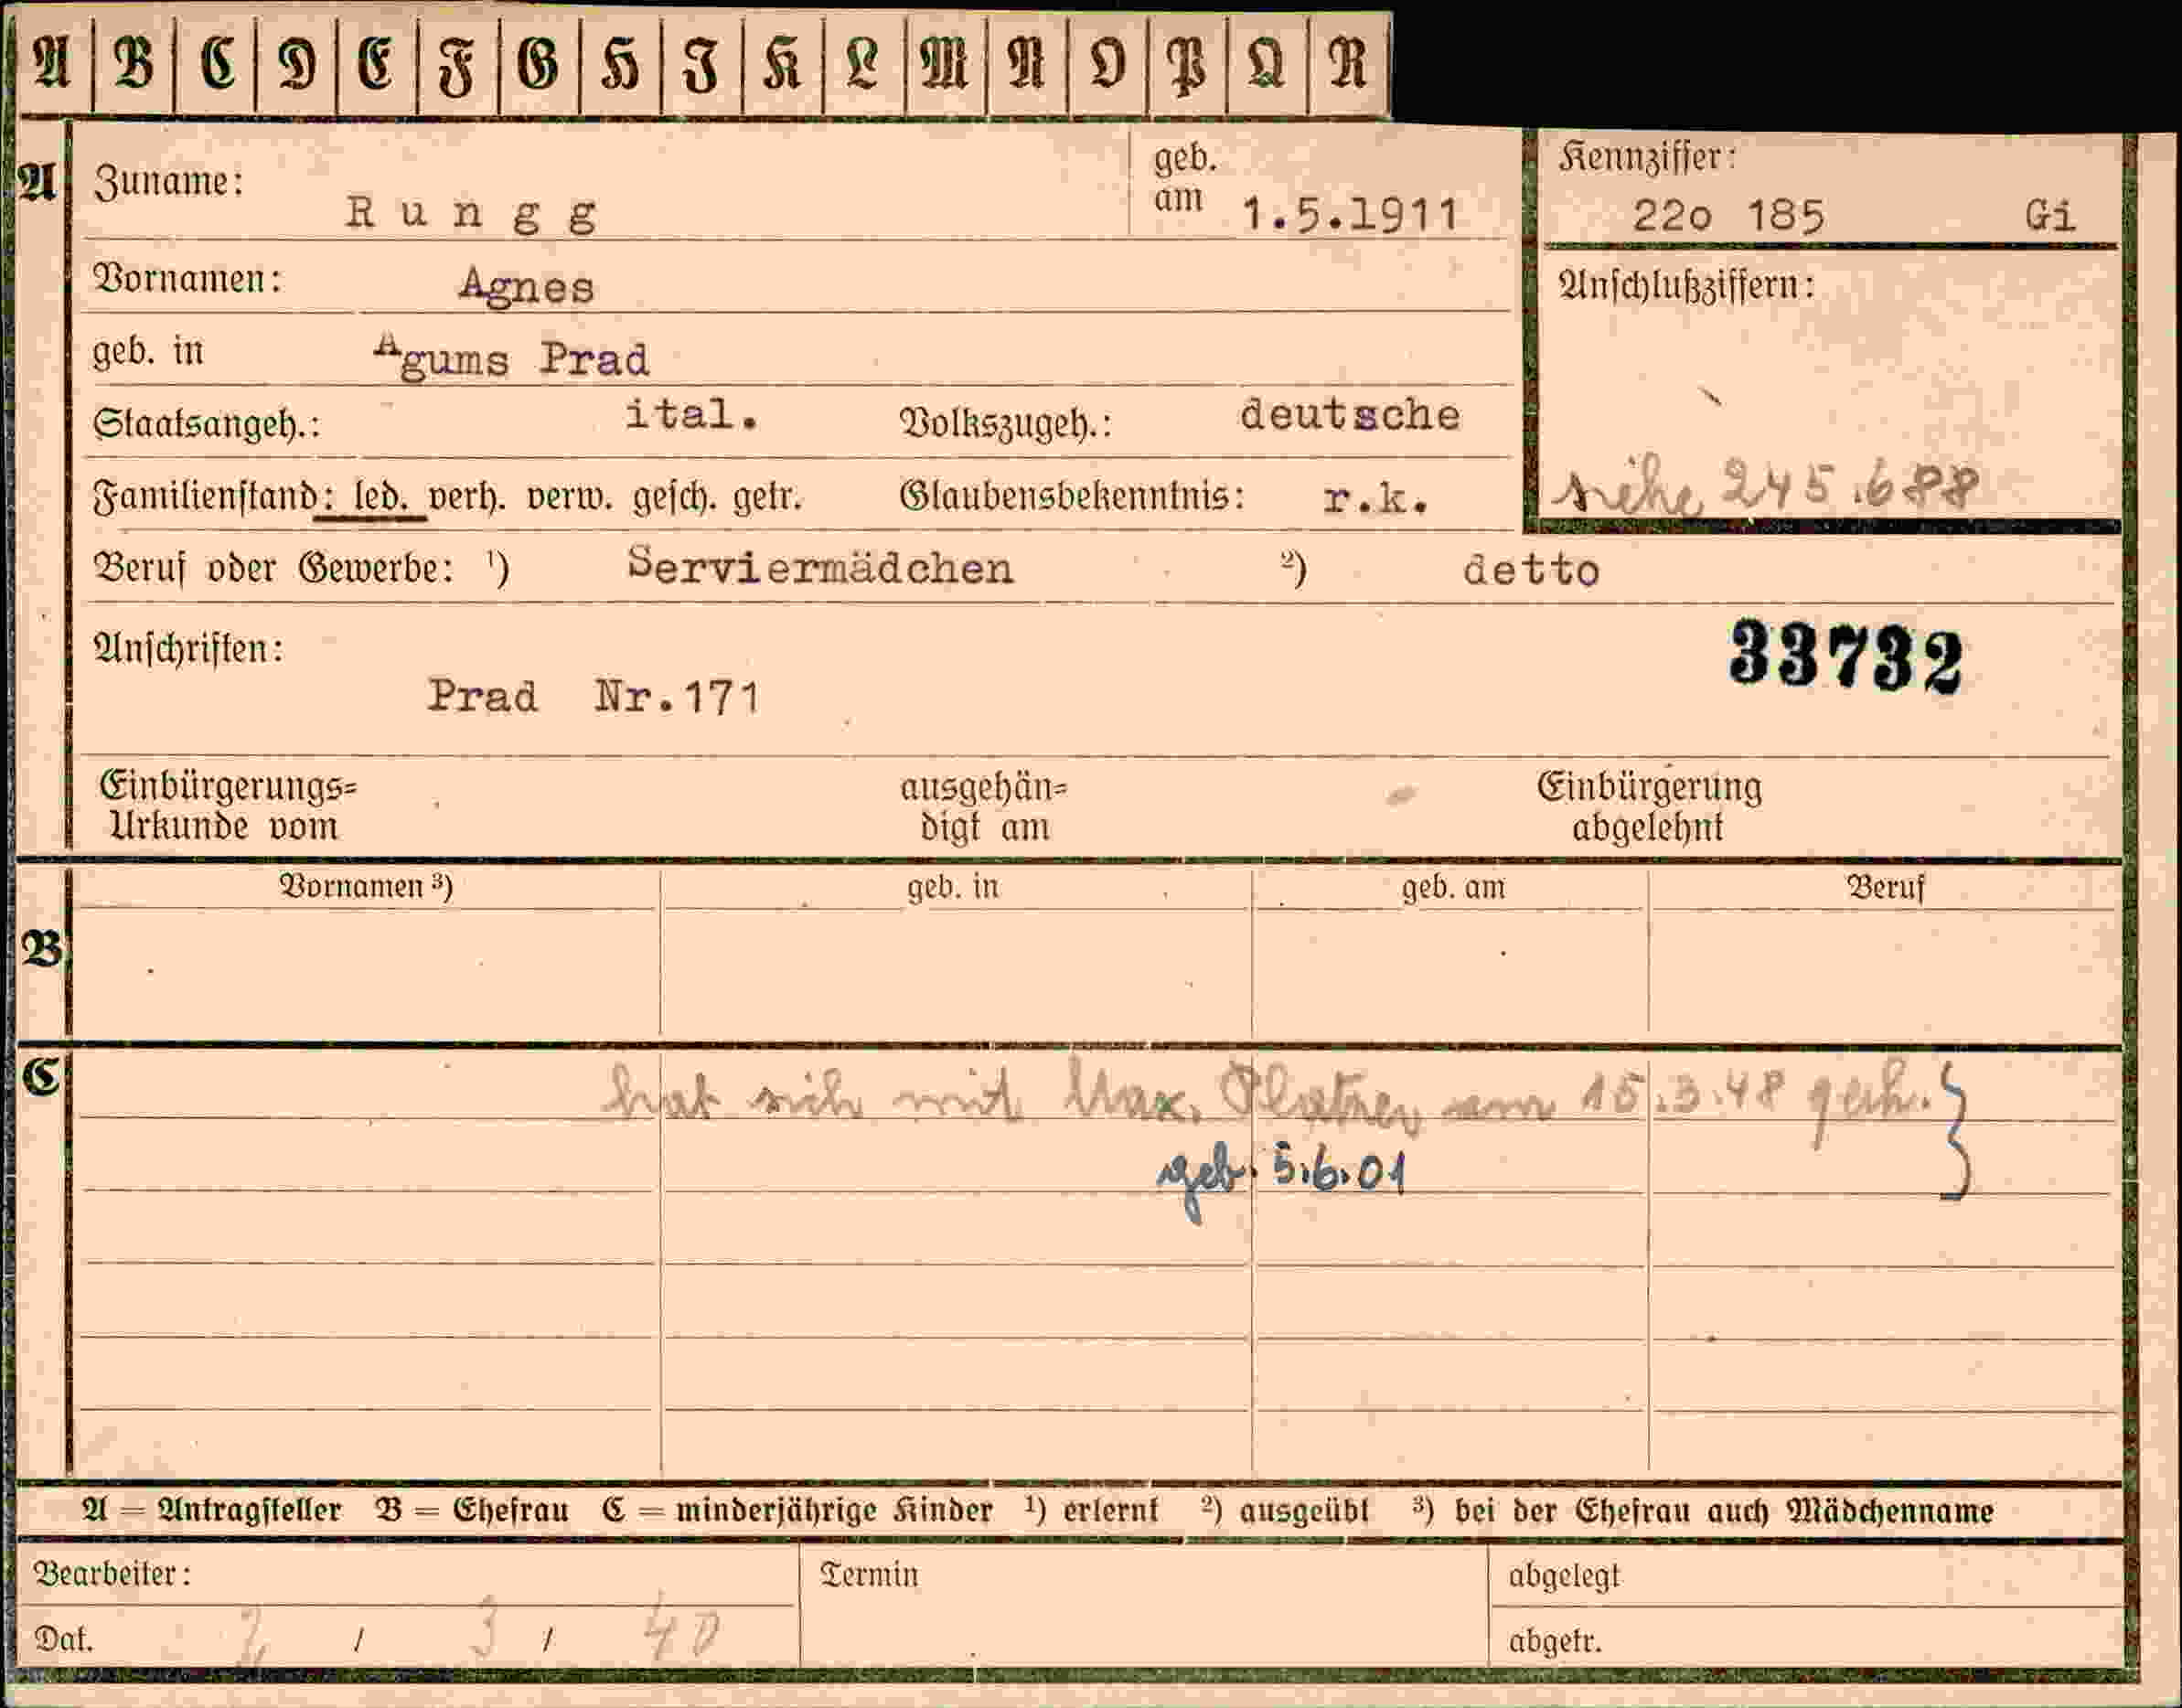 A B C D E F G H I K L M N O P Q R
A Zuname: Rungg geb. am 1.5.1911
Kennziffer: 22o 185 Gi
Vornamen: Agnes
Anschlußziffern:
geb. in Agums Prad
Staatsangeh.: ital. Volkszugeh.: deutsche
Familienstand: led. verh. verw. gesch. getr. Glaubensbekenntnis: r.k.
siehe 245.688
Beruf oder Gewerbe: ¹) Serviermädchen ²) detto
Anschriften:
33732
Prad Nr.171
Einbürgerungs= ausgehän= Einbürgerung
Urkunde vom digt am abgelehnt
Vornamen ³) geb. in geb. am Beruf
B
C
hat sich mit Max. Platzer am 15.3.48
geb. 5.6.01
A = Antragsteller B = Ehefrau C = minderjährige Kinder ¹) erlernt ²) ausgeübt ³) bei der Ehefrau auch Mädchenname
Bearbeiter: Termin abgelegt
Dat. 2 / 3 / 40 abgetr.